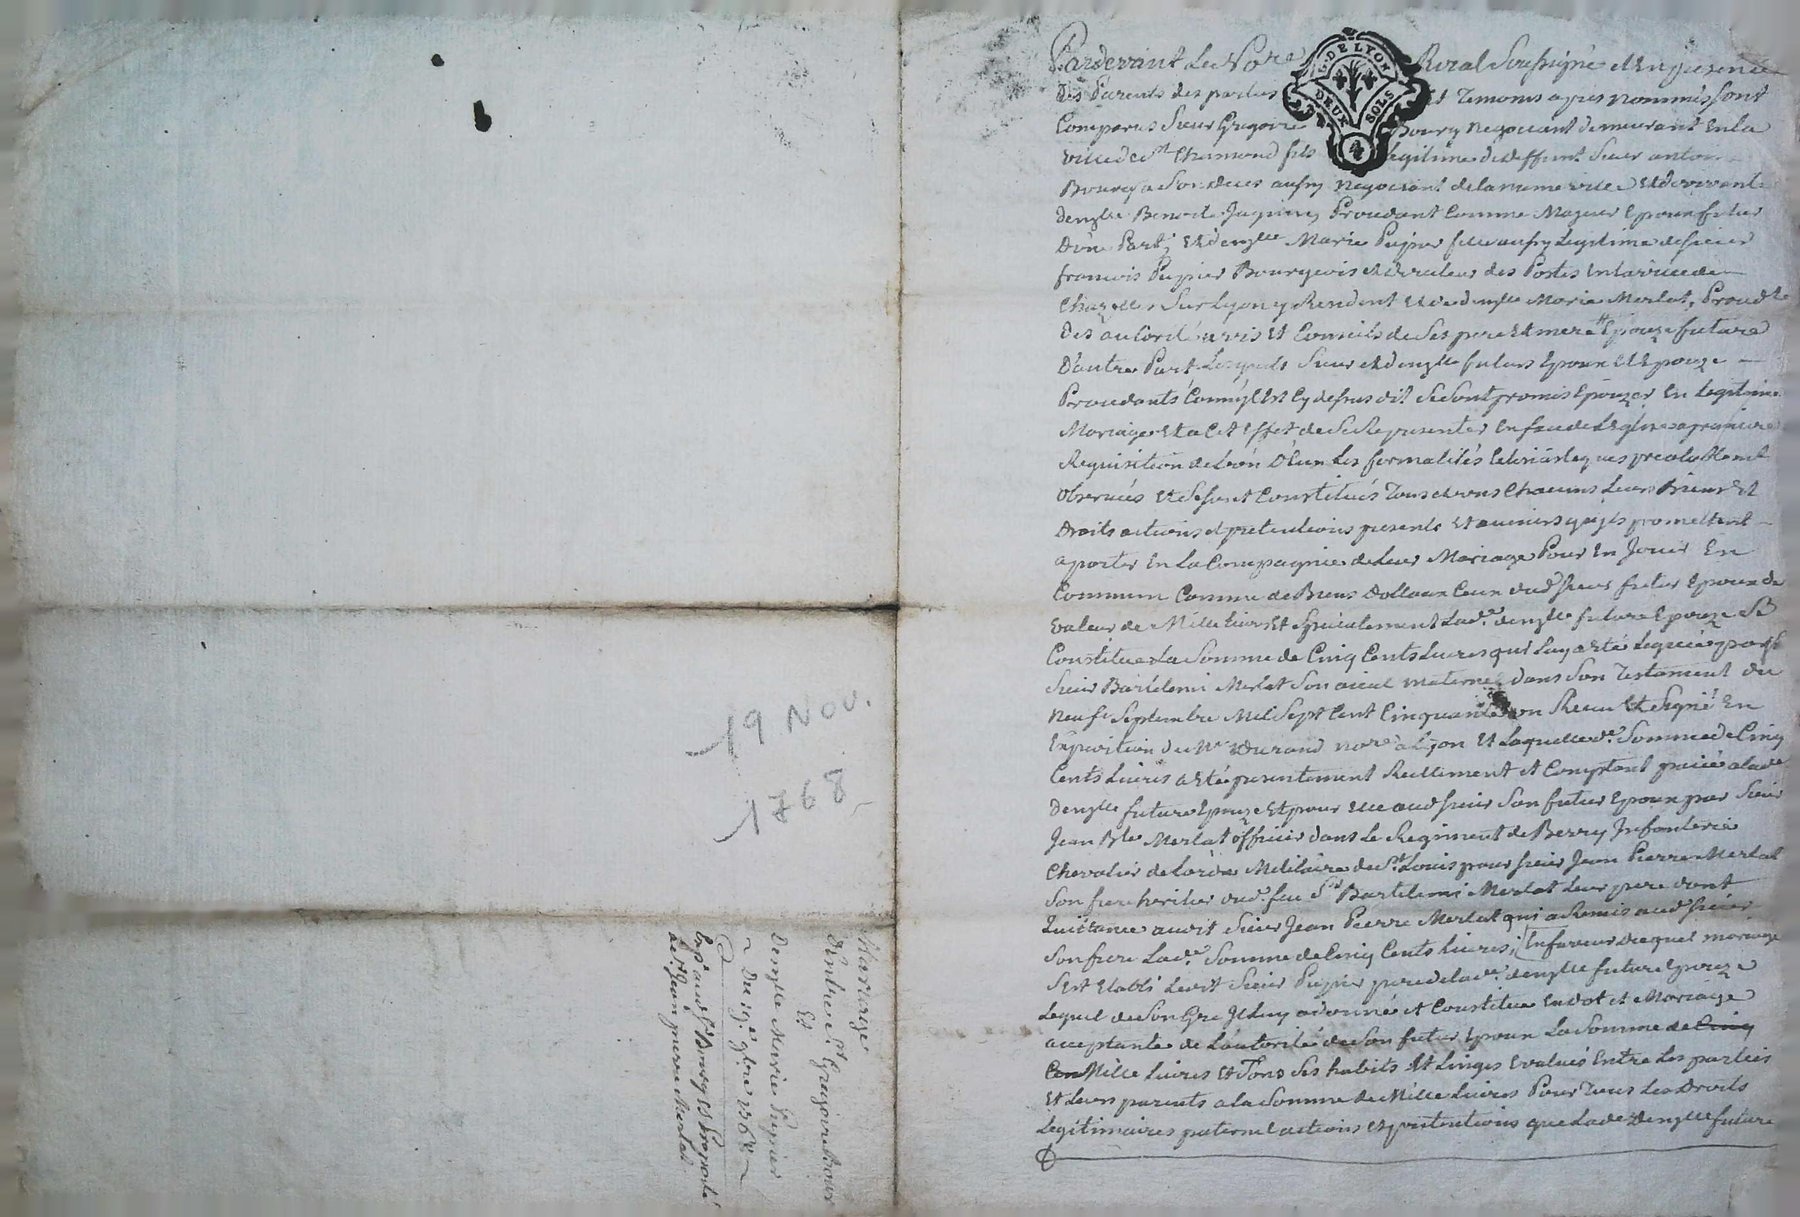 Pardevant Le No.re Roial Soussigné et En presence
des Parents des parties et Temoins apres nommés sont
Comparus Sieur Gregoire Bourg Negotiant demeurant En la
ville de St. Chamond fils Legitime de deffunt Sieur antoine
Bourg a Son deces aussy negotiant de la meme ville et de vivante
demlle Benoite Jaquin Procedant Comme Majeur Epoux futur
d'une Part; et demlle Marie Pupier fille aussy Legitime de sieur
francois Pupier Bourgeois et directeur des Postes en la ville de
Chazelles Sur Lyon y Resident et de demlle Marie Merlat, Proced.te
des autorité avis et Conseils de Ses pere et mere Epouze future
D'autre Part Lesquels Sieur et demlle futurs Epoux et Epouze
Procedants Comme Est Cy dessus dit Se Sont promis Epouzer En Legitime
Mariage et a Cet Effet de Se Representer En face de L'eglise a premiere
Requisition de L'un D'eux Les formalités Ecclesiastiques prealablement
observées et Se Sont Constitués Tous et uns Chacuns Leurs Biens et
Droits actions et pretentions presents et avenirs qu'ils promettent
aporter En La Compagnie de Leur Mariage Pour En Jouir En
Commun Comme de Biens Dottaux Ceux dud. sieur futur Epoux de
valeur de Mille Livres et Specialement Lad.e demlle future Epouze Se
Constitue La Somme de Cinq Cents Livres qui Luy a Eté Leguée par
Sieur Bartelemi Merlat Son aieul maternel dans Son Testament du
Neuf Septembre Mil Sept Cent Cinquante un Receu et Signé En
Expedition de Me Durand nore a Lyon et Laquelle de. Somme de Cinq
Cents Livres a Eté presentement Reellement et Comptant paiée a lade
demlle future Epouze et pour Elle aud sieur Son futur Epoux par Sieur
Jean Bte Merlat officier dans Le Regiment de Berry Infanterie
Chevalier de L'ordre Militaire de St Louis pour sieur Jean Pierre Merlat
Son frere heritier dud. feu Sr Bartelemi Merlat Leur pere dont
Quittance audit Sieur Jean Pierre Merlat qui a Remis aud sieur
Son frere Lad.e Somme de Cinq Cents Livres; En faveur Duquel mariage
S'est Etabli Ledit Sieur Pupier pere de lad.e demlle future Epouze
Lequel de Son Gre Il Luy a donné et Constitue En dot et Mariage
acceptante de L'autorité de Son futur Epoux La Somme de Cinq
Cen Mille Livres et Tous Ses habits et Linges Evalués Entre Les parties
et Leurs parents a la Somme de Mille Livres Pour Tous Les Droits
Legitimaires paternel actions et pretentions que Lade Demlle future
G. DE LYON
DEUX SOLS
4
19 NOV.
1768
Mariage
D'entre Sr. Gregoire Bour
Et
Demlle Marie Pupier
Du 19.e 9bre 1768
Exp.é aud Sr Bourg
Sr Jean pierre Merlat